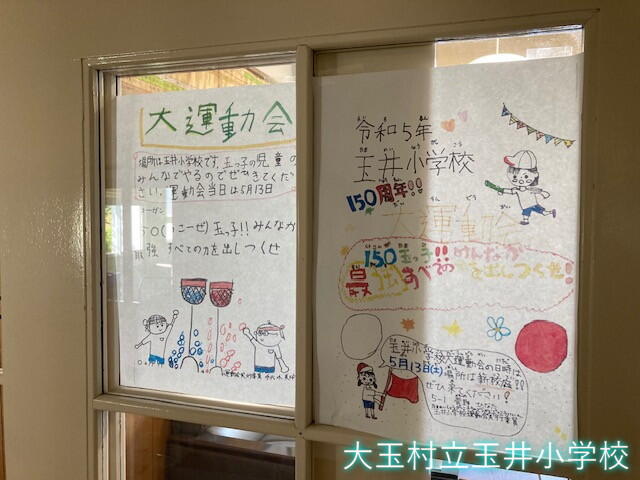 大運動会
場所は玉井小学校です。玉っ子の児童の
みんなでやるのでぜひきてくだ
さい。運動会当日は5月13日
スローガン
150(いっこーぜ)玉っ子!!みんなが
最強 すべての力を出しつくせ
令和5年
玉井小学校
150周年!!
大運動会
150玉っ子!!みんなが
最強すべての
を出しつくせ!
玉井小学校大運動会の日時は
5月13日(土)場所は新校庭!!
ぜひ来てください!
5-1
大玉村立玉井小学校